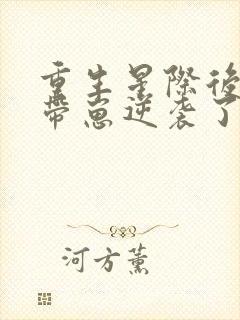 重生星際後
帶崽逆袭了
河方薰